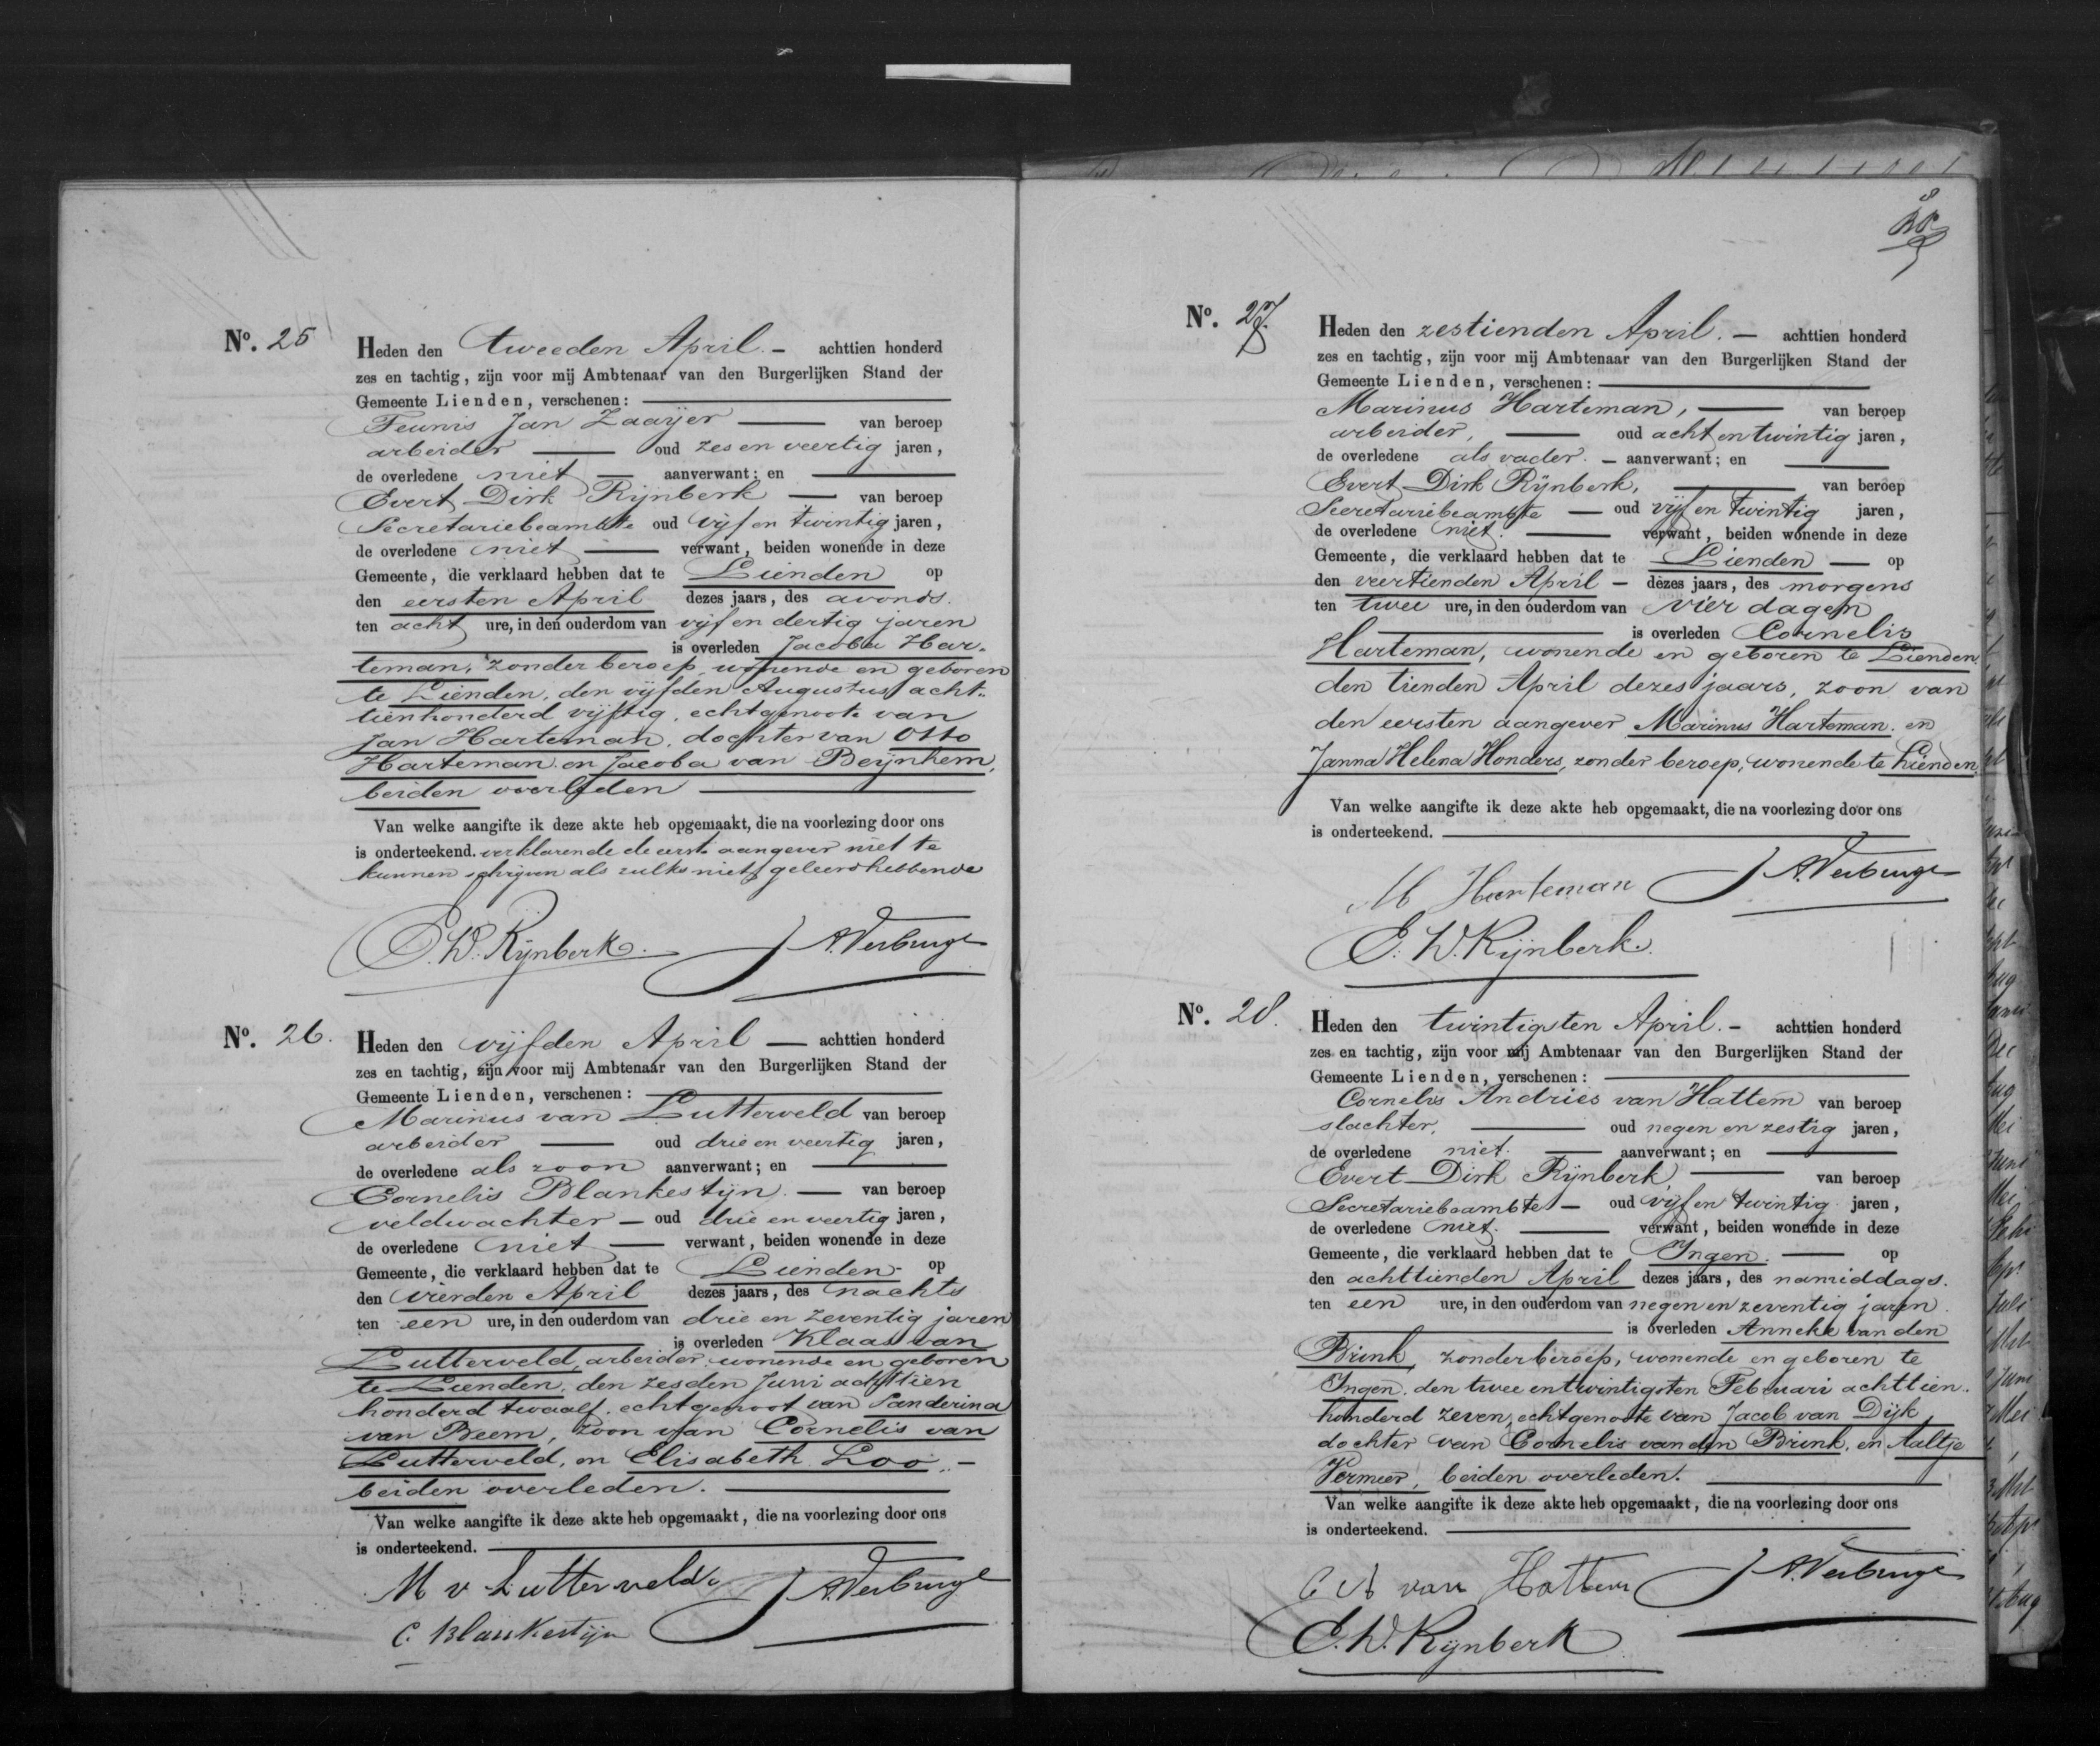 No. 25
Heden den tweeden April. — achttien honderd
zes en tachtig, zijn voor mij Ambtenaar van den Burgerlijken Stand der
Gemeente Lienden, verschenen: —
Teunis Jan Zaaijer — van beroep
arbeider — oud zes en veertig jaren,
de overledene niet — aanverwant; en —
Evert Dirk Rijnberk — van beroep
Secretariebeambte oud vijf en twintig jaren,
de overledene niet — verwant, beiden wonende in deze
Gemeente, die verklaard hebben dat te Lienden op
den eersten April dezes jaars, des avonds.
ten acht ure, in den ouderdom van vijf en dertig jaren
— is overleden Jacoba Har-
teman, zonder beroep, wonende en geboren
te Lienden, den vijfden Augustus acht-
tienhonderd vijftig, echtgenoote van
Jan Harteman, dochter van Otto
Harteman en Jacoba van Beijnhem,
beiden overleden —
Van welke aangifte ik deze akte heb opgemaakt, die na voorlezing door ons
is onderteekend. verklarende de eerste aangever niet te
kunnen schrijven als zulks niet geleerd hebbende
E. D. Rijnberk. J A. Verburgt
No. 26.
Heden den vijfden April — achttien honderd
zes en tachtig, zijn voor mij Ambtenaar van den Burgerlijken Stand der
Gemeente Lienden, verschenen: —
Marinus van Lutterveld van beroep
arbeider — oud drie en veertig jaren,
de overledene als zoon aanverwant; en —
Cornelis Blankestijn. — van beroep
veldwachter — oud drie en veertig jaren,
de overledene niet — verwant, beiden wonende in deze
Gemeente, die verklaard hebben dat te Lienden - op
den vierden April dezes jaars, des nachts
ten een ure, in den ouderdom van drie en zeventig jaren
— is overleden Klaas van
Lutterveld, arbeider, wonende en geboren
te Lienden, den zesden Juni achttien
honderd twaalf, echtgenoot van Sanderina
van Beem, zoon van Cornelis van
Lutterveld, en Elisabeth Loo. —
beiden overleden. —
Van welke aangifte ik deze akte heb opgemaakt, die na voorlezing door ons
is onderteekend. —
M v Lutterveld J A. Verburgt
C. Blankestijn
No. 27.
Heden den zestienden April. — achttien honderd
zes en tachtig, zijn voor mij Ambtenaar van den Burgerlijken Stand der
Gemeente Lienden, verschenen: —
Marinus Harteman, — van beroep
arbeider, — oud acht en twintig jaren,
de overledene als vader. — aanverwant; en —
Evert Dirk Rijnberk, — van beroep
Secretariebeambte — oud vijf en twintig jaren,
de overledene niet. — verwant, beiden wonende in deze
Gemeente, die verklaard hebben dat te Lienden — op
den veertienden April — dezes jaars, des morgens
ten twee ure, in den ouderdom van vier dagen
— is overleden Cornelis
Harteman, wonende en geboren te Lienden.
den tienden April dezes jaars, zoon van
den eersten aangever Marinus Harteman. en
Janna Helena Honders, zonder beroep, wonende te Lienden.
Van welke aangifte ik deze akte heb opgemaakt, die na voorlezing door ons
is onderteekend. —
M Harteman J A. Verburgt
E. D. Rijnberk.
No. 28.
Heden den twintigsten April. — achttien honderd
zes en tachtig, zijn voor mij Ambtenaar van den Burgerlijken Stand der
Gemeente Lienden, verschenen: —
Cornelis Andries van Hattem van beroep
slachter, — oud negen en zestig jaren,
de overledene niet. — aanverwant; en —
Evert Dirk Rijnberk, — van beroep
Secretariebeambte — oud vijf en twintig jaren,
de overledene niet. — verwant, beiden wonende in deze
Gemeente, die verklaard hebben dat te Ingen. — op
den achttienden April dezes jaars, des namiddags.
ten een ure, in den ouderdom van negen en zeventig jaren.
— is overleden Anneke van den
Brink, zonder beroep, wonende en geboren te
Ingen. den twee en twintigsten Februari achttien-
honderd zeven, echtgenoote van Jacob van Dijk,
dochter van Cornelis van den Brink, en Aaltje
Vermeer, beiden overleden. —
Van welke aangifte ik deze akte heb opgemaakt, die na voorlezing door ons
is onderteekend. —
C A van Hattem J A. Verburgt
E. D. Rijnberk